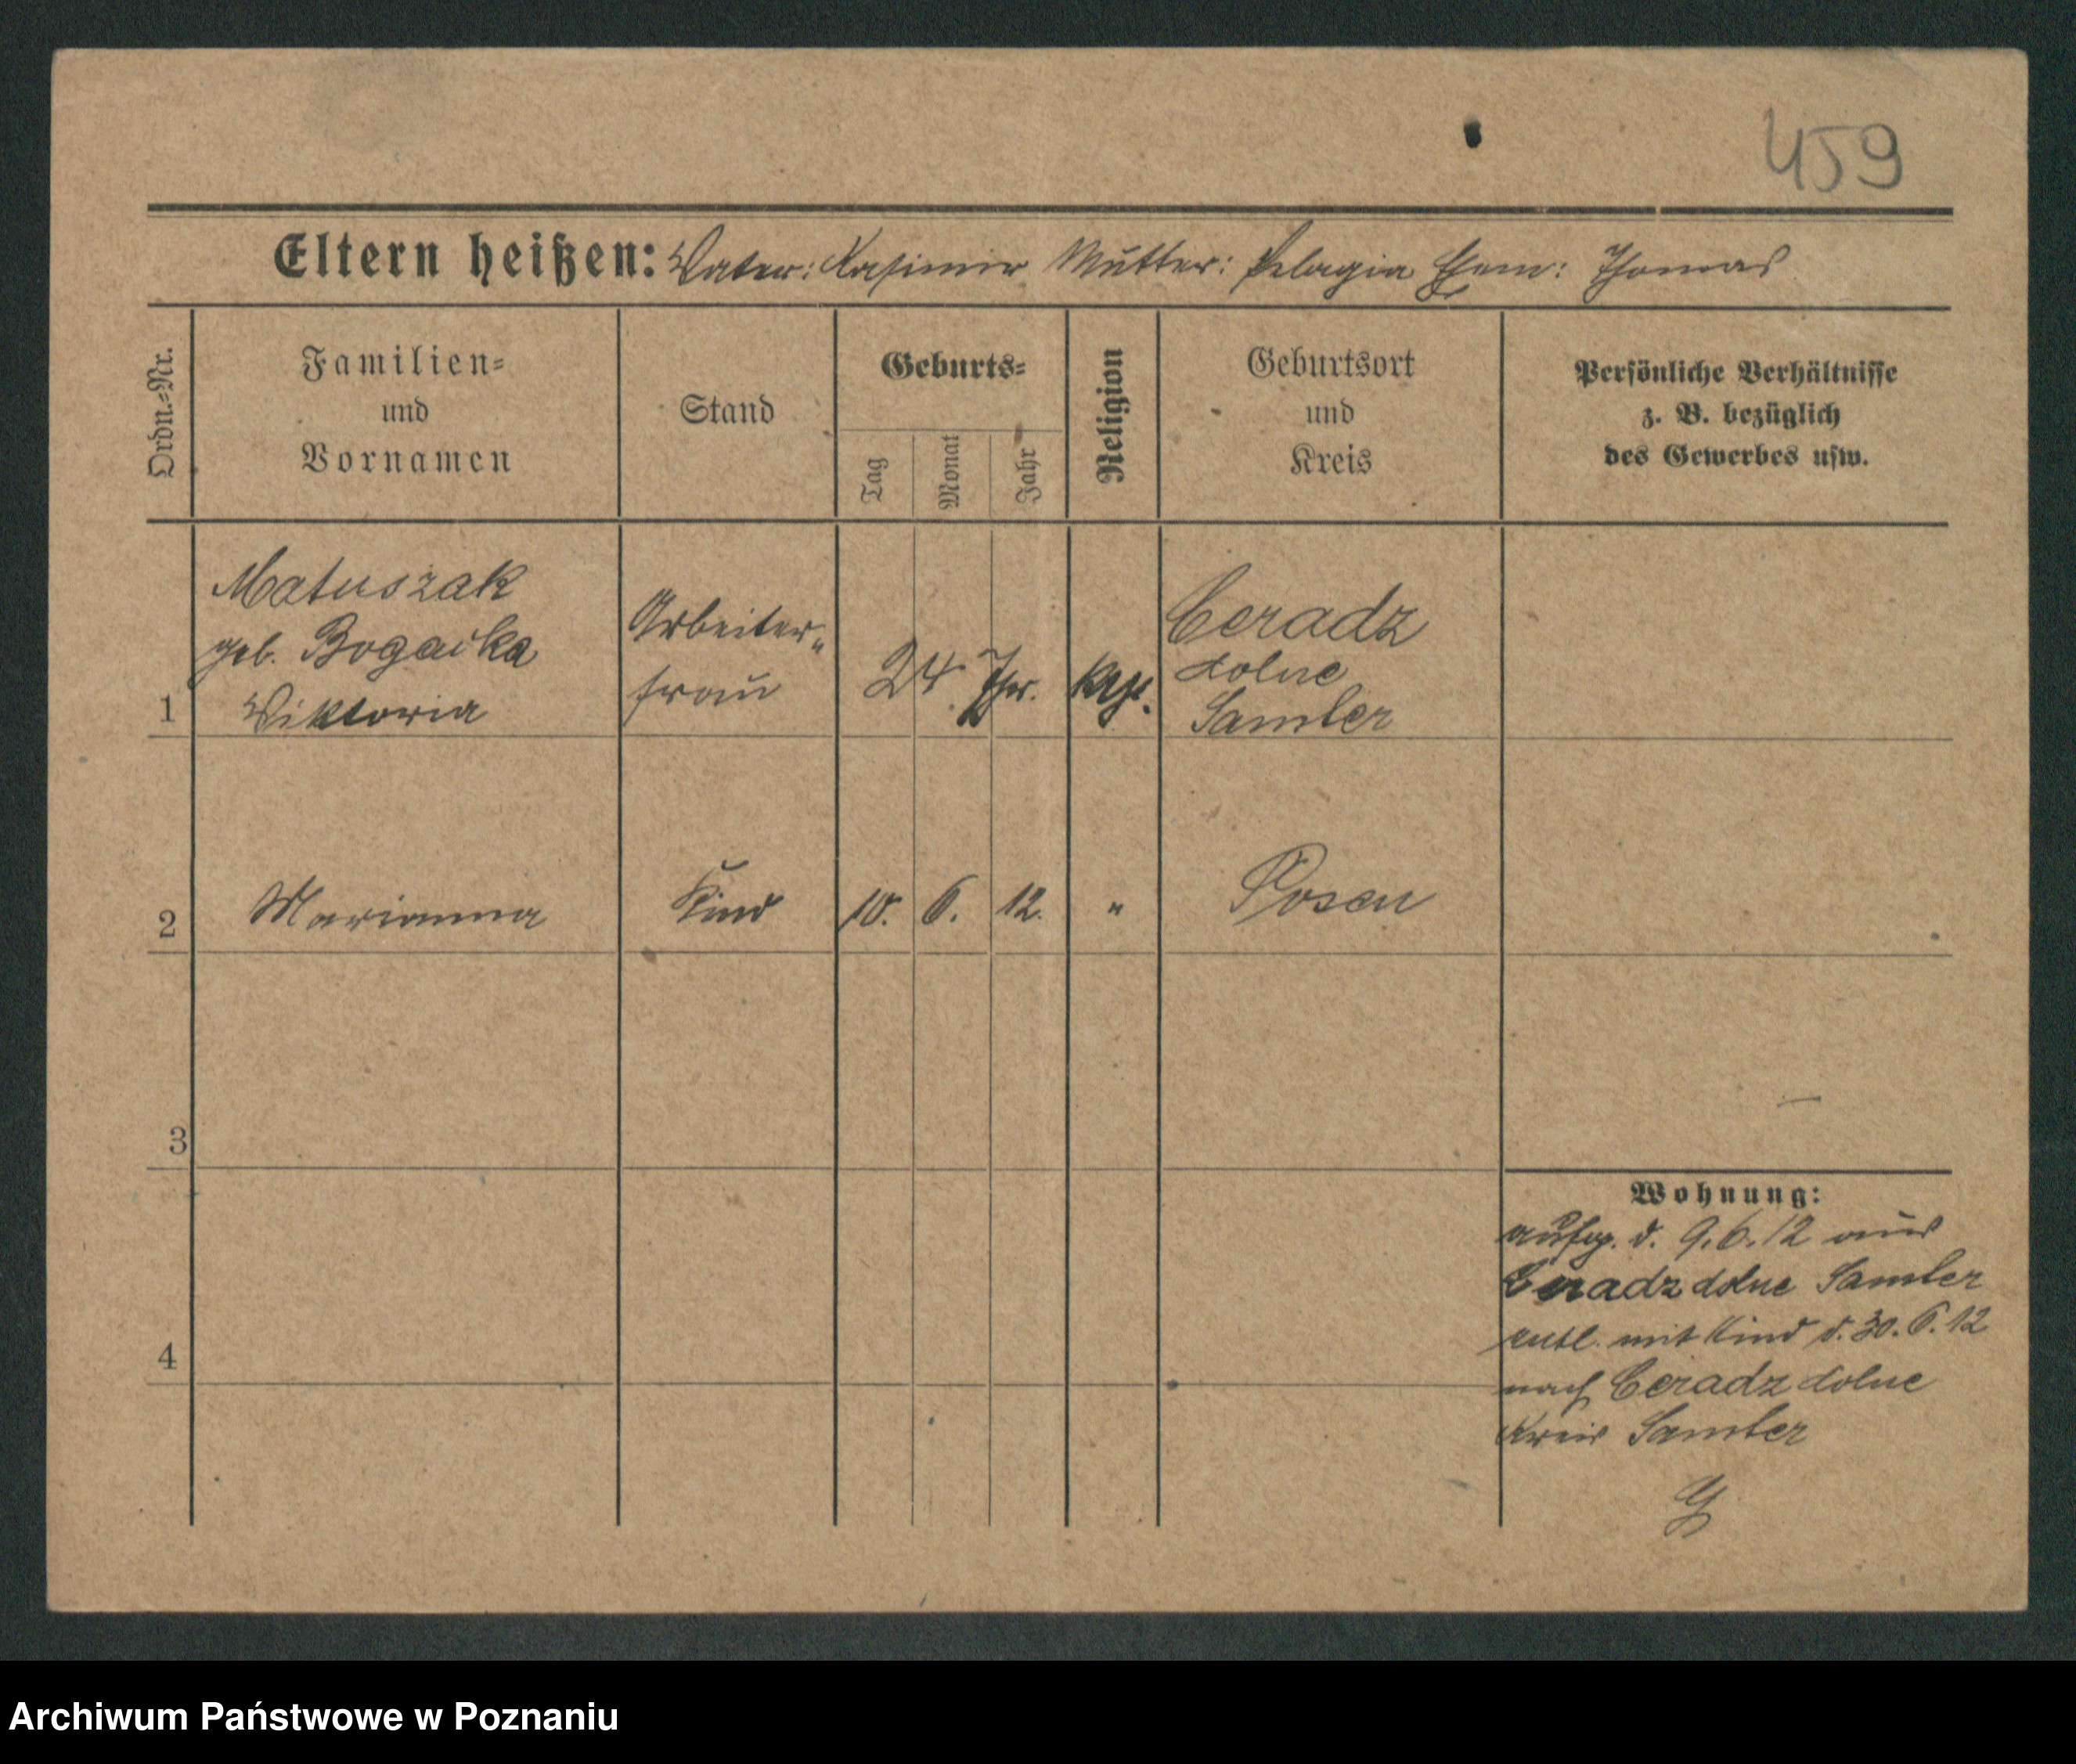 459
Eltern heißen: Vater: Kasimir Mutter: Pelagia Ehem: Thomas
Ordn.-Nr.
Familien-
und
Vornamen
Stand
Geburts-
Tag
Monat
Jahr
Religion
Geburtsort
und
Kreis
Persönliche Verhältnisse
z. B. bezüglich
des Gewerbes usw.
1
Matuszak
geb.
Viktoria
Arbeiter-
frau
24 Jhr.
Ceradz
dolne
Samter
2
Marianna
Kind
10. 6. 12.
"
Posen
3
4
Wohnung:
aufg. d. 9.6.12 aus
Ceradz dolne Samter
entl. mit Kind d. 30.6.12
nach Ceradz dolne
Kreis Samter
Archiwum Państwowe w Poznaniu